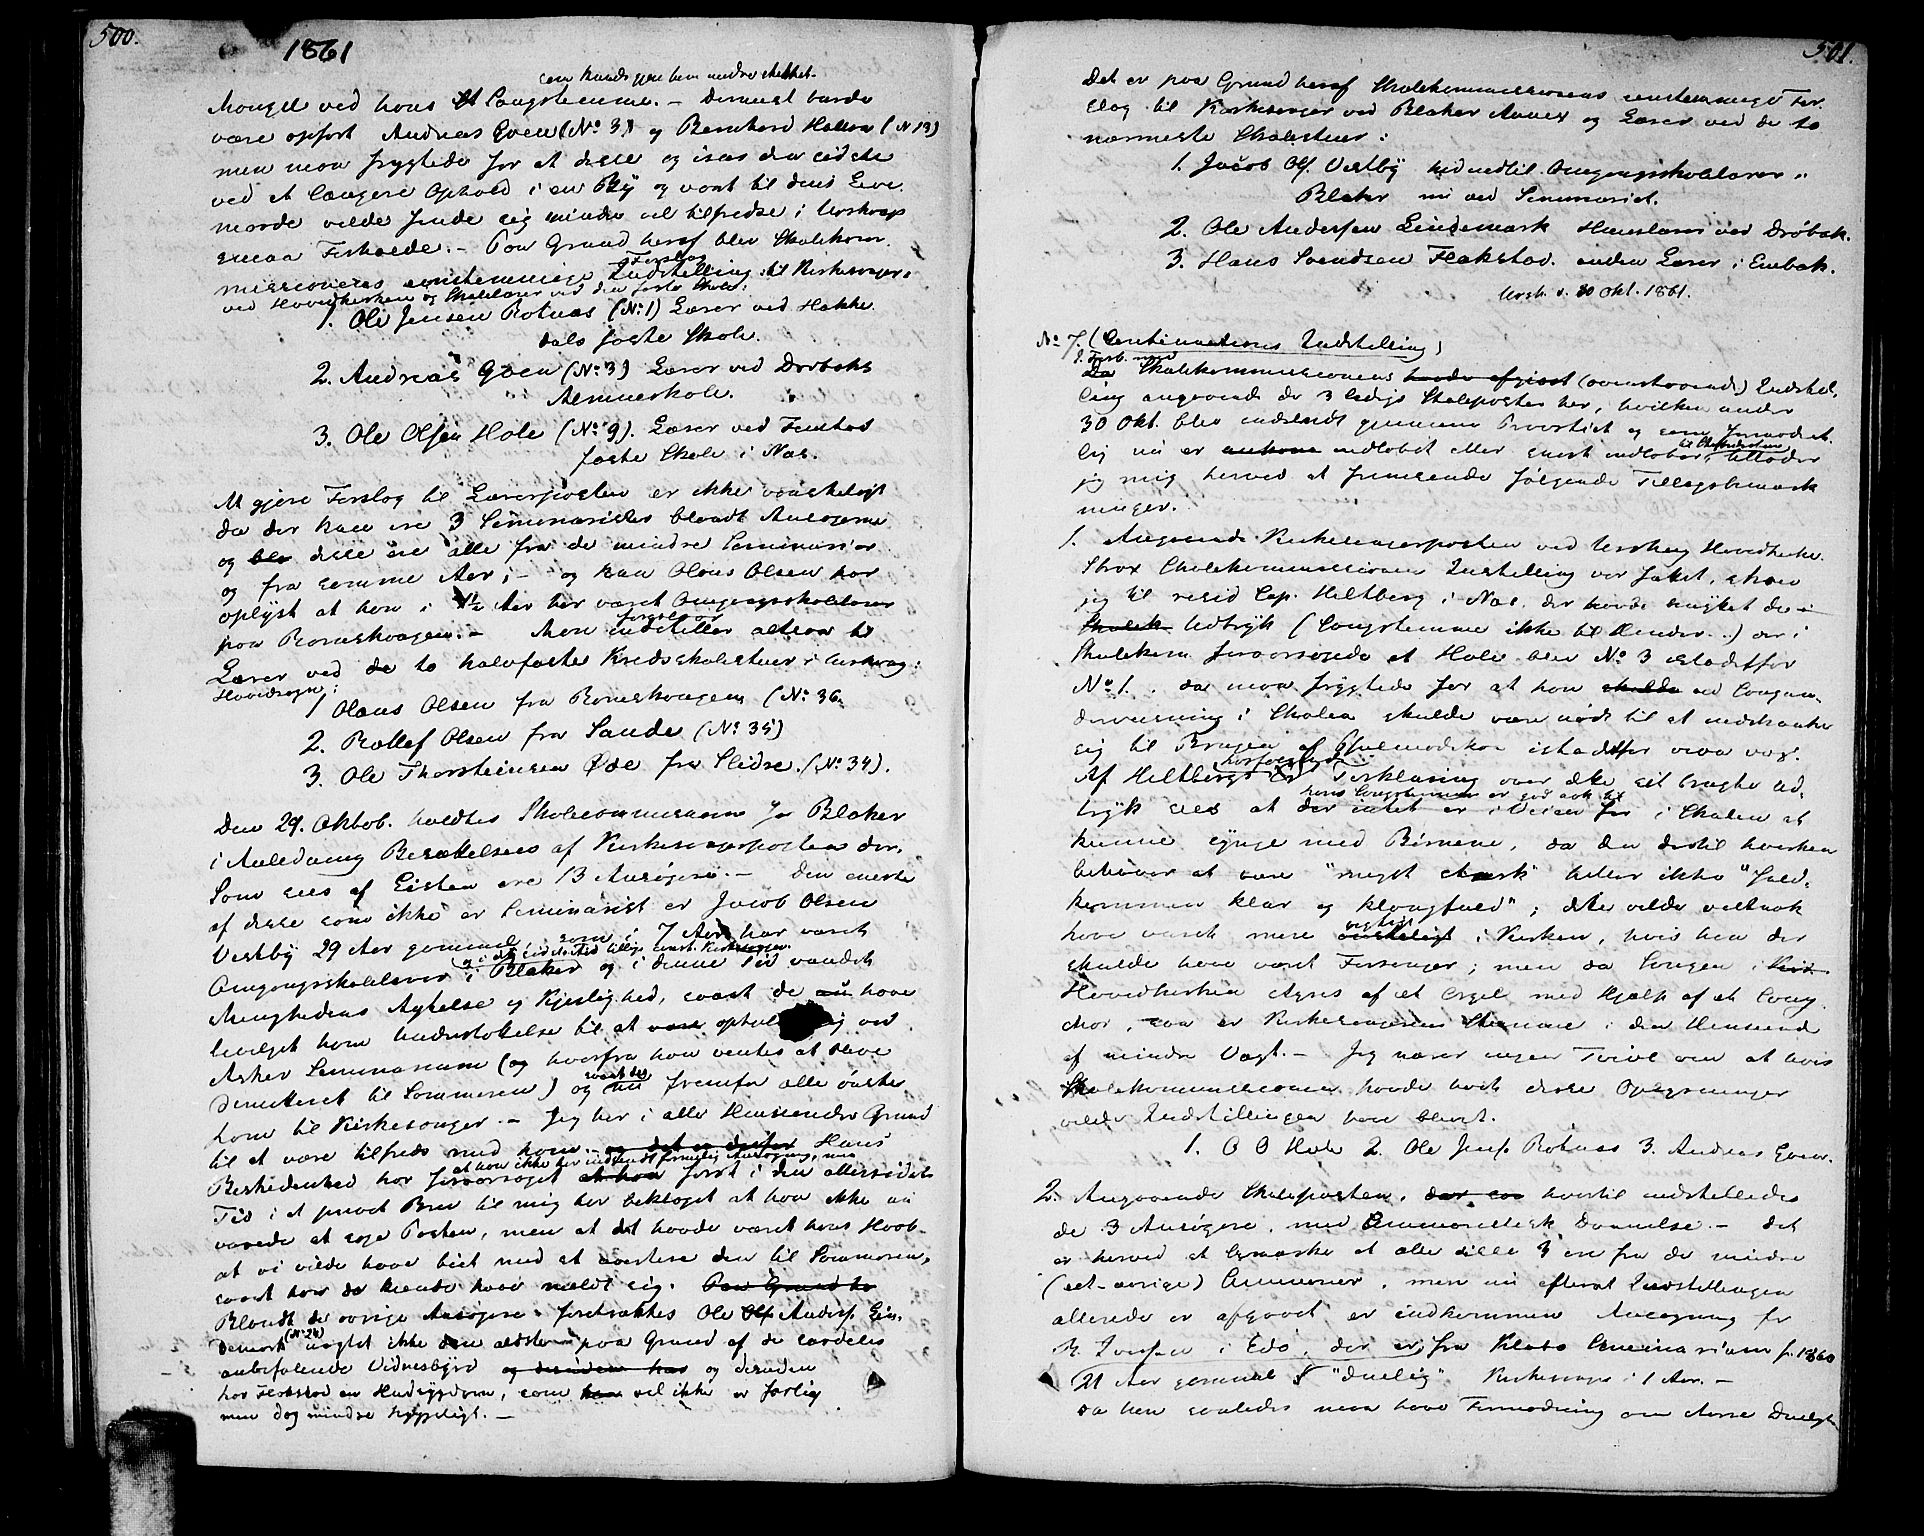 500.
1861
Mangel ved hans Sangstemme. – Dernæst burde
være opført Andreas Goen (No 3) og Bernhard Halvorsen (N 13)
men man frygtede for at disse og især den sidste
ved et længere Ophold i en By og vant til dens Leve
maade vilde finde sig mindre vel tilfredse i Urskougs
smaa Forholde. – Paa Grund heraf blev Skolekom
missionens eenstemmige Forslag Indstilling til Kirkesanger
ved Hovedkirken og Skolelærer ved den faste Skole:
1. Ole Jensen Rotnæs (No 1) Lærer ved Hakke
dals faste Skole.
2. Andreas Goen (No 3) Lærer ved Drøbaks
Almueskole.
3. Ole Olsen Hole (No 9). Lærer ved
faste Skole i Næs.
At gjøre Forslag til Lærerposten er ikke vanskeligt
da der kun ere 3 Seminarister blandt Ansøgerne
og disse ere alle fra de mindre Seminarier
og fra samme Aar; – og kun Olaus Olsen har
oplyst at han i 1½ Aar har været Omgangsskolelærer
paa Romskougen. – Man foreslaaer indstiller altsaa til
Lærer ved de to halvfaste Kredsskolestuer i Urskoug
Hovedsogn:
1 Olaus Olsen fra Romskougen (No 36.
2. Rollef Olsen fra Sande (No 35)
3. Ole Thorsteinsen Øde fra Slidre. (No 34).
Den 29. Oktob. holdtes Skolecommission for Blaker
i Anledning Besættelsen af Kirkesangerposten der.
Som sees af Listen ere 13 Ansøgere. – Den eneste
af disse som ikke er Seminarist er Jacob Olsen
Vestby 29 Aar gammel som i 7 Aar har været
Omgangsskolelærer i Blaker og i denne Tid vundet
Menighedens Agtelse og Kjerlighed, samt de have
bevilget ham Understøttelse til at opholde sig ved
Asker Seminarium (og hvorfra han ventes at blive
demitteret til Sommeren) og fremfor alle ønske
ham til Kirkesanger. – Jeg har i alle Henseender Grund
til at være tilfreds med ham og det er derfor Hans
Beskedenhed har foraarsaget at han først i den allersidste
Tid i et privat Brev til mig har beklaget at han ikke nu
vovede at søge Posten, men at det havde været hans Haab
at vi vilde have biet med at avertere den til Sommeren,
samt han da kunde have meldt sig. Paa Grund
Blandt de øvrige Ansøgere foretrækkes Ole Anders. Lin
demark (No 24) uagtet ikke den ældste paa Grund af de særdeles
anbefalende Vidnesbyrd og desuden har og desuden
har Flakstad en Hudsygdom, som vel ikke er farlig
men dog mindre hyggeligt. –
501.
Det er paa Grund heraf Skolekommissionens eenstemmige For
slag til Kirkesanger ved Blaker Annex og Lærer ved de to
nærmeste Skolestuer:
1. Jacob Ols. Vestby hidindtil Omgangsskolelærer i
Blaker nu ved Seminariet.
2. Ole Andersen Lindemark Huuslærer ved Drøbak.
3. Hans Svendsen Flakstad. anden Lærer i Enebak.
Ursk. d. 30 Okt. 1861.
No 7. (Continuations Indstilling)
Skolekommissionens havde afgivet (ovenstaaende) Indstil
ling angaaende de 3 ledige Skoleposter her, hvilken under
30 Okt. blev indsendt gjennem Provstiet og som formodent
lig nu er indløbet eller snart indløber, tillader
jeg mig herved at fremsende følgende Tillægsbemærk
ninger.
1. Angaaende Kirkesangerposten ved Urskoug Hovedkirke.
Strax Skolekommissionens Indstilling var fattet, skrev
jeg til resid Cap. Heltberg i Næs, der havde brugt de
Skolek Udtryk (Sangstemme ikke til Hinder ..) der i
Skolekom. foraarsagede at Hole blev No 3 istedetfor
No 1., da man frygtede for at han skulde ved Sangun
dervisning i Skolen skulde være nødt til at indskrænke
sig til Brugen af Psalmodikon istedetfor viva vox.
Af Heltbergs Forklaring over dette sit brugte Ud
tryk sees at der intet er i Veien for i Skolen at
kunne synge med Børnene, da den dertil hverken
behøver at være "meget stærk" heller ikke "fuld
kommen klar og klangfuld"; dette vilde vel nok
have været mere vigtigt i Kirken, hvis han der
skulde have været Forsanger; men da Sangen i
Hovedkirken styres af et Orgel med Hjælp af et Sang
chor, saa er Kirkesangerens Stemme i den Henseende
af mindre Vægt. – Jeg nærer ingen Tvivl om at hvis
Skolekommissionen havde havt disse Oplysninger
vilde Indstillingen have blevet.
1. O O Hole 2. Ole Jens. Rotnæs 3. Andreas Goen.
2. Angaaende Skoleposten, hvortil indstilledes
de 3 Ansøgere, med Seminaristisk Dannelse. – Det
er herved at bemærke at alle disse 3 ere fra de mindre
Seminarier, men nu efterat Indstillingen
allerede er afgivet er indkommen Ansøgning fr
i Edö, der er fra Klæbo Seminarium f. 1860
21 Aar gammel "duelig" Kirkesanger i 1 Aar. –
da han saaledes maa have Formodning om større Dueligh